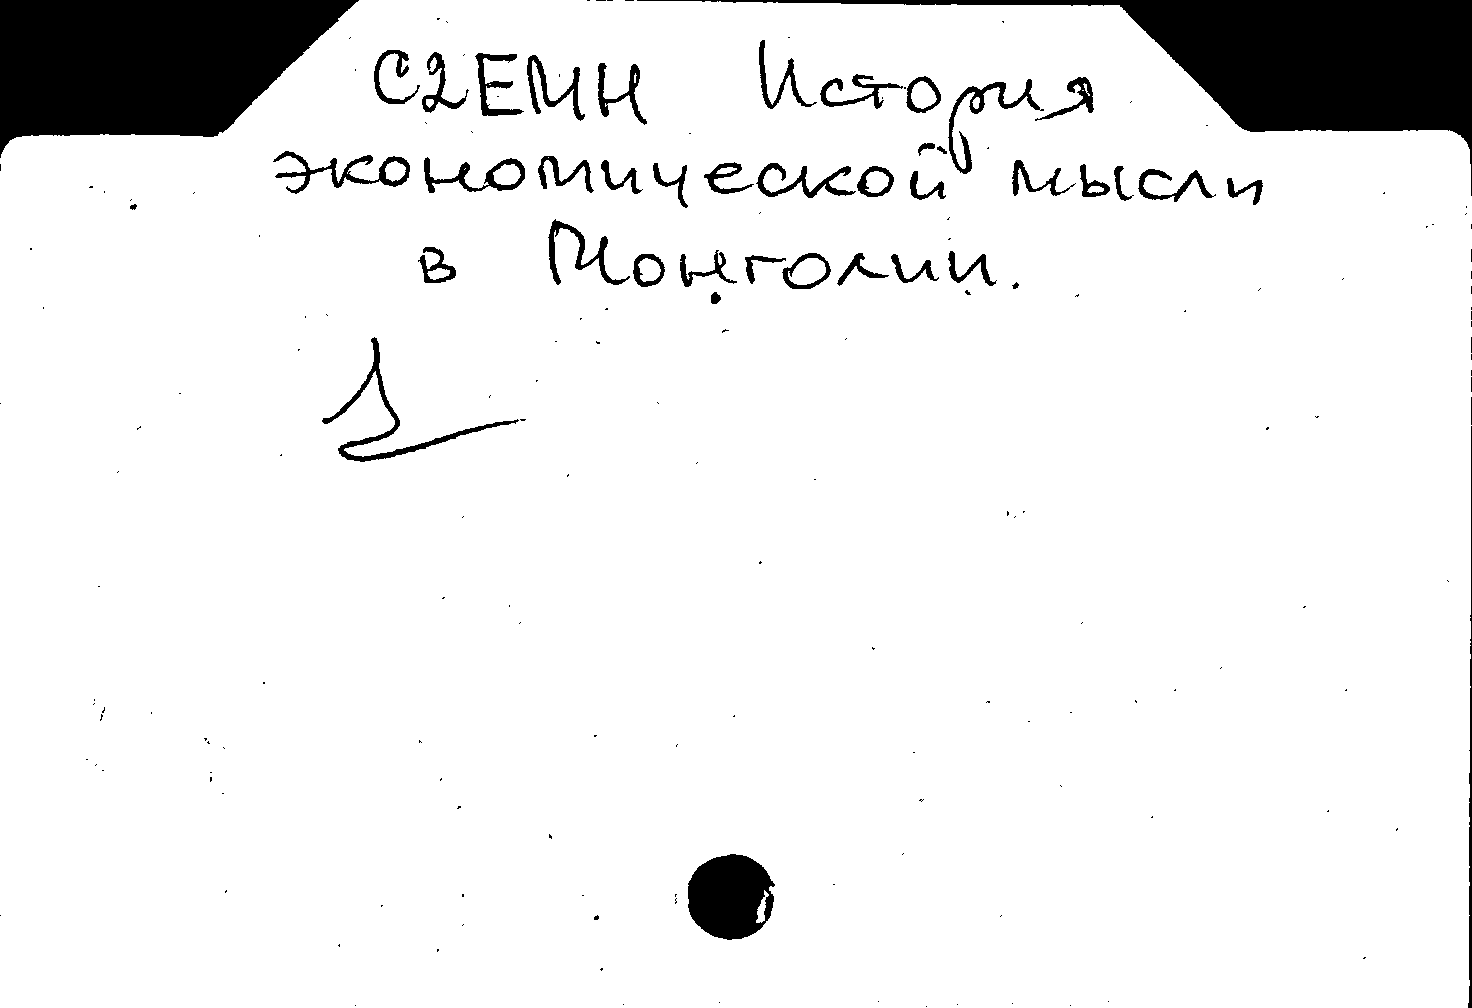 С2ЕМН История
экономической мысли
в Монголии.
1